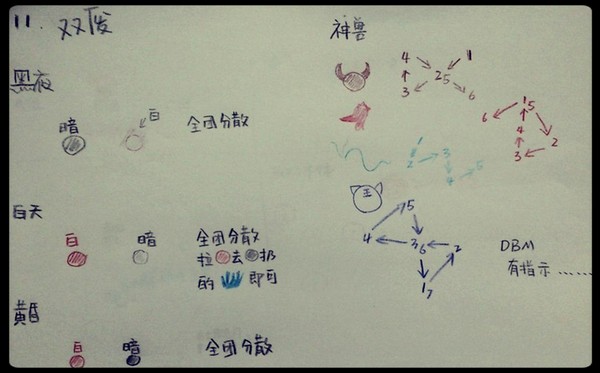 11. 双俊
黑夜
暗
白
全团分散
白天
白
暗
全团分散
拉 去 扔
的 即可
黄昏
白
暗
全团分散
神兽
4 1
25
3 6
15
6
4
2
3
1
2 3
4 5
王
5
4 36 2
17
DBM
有指示……